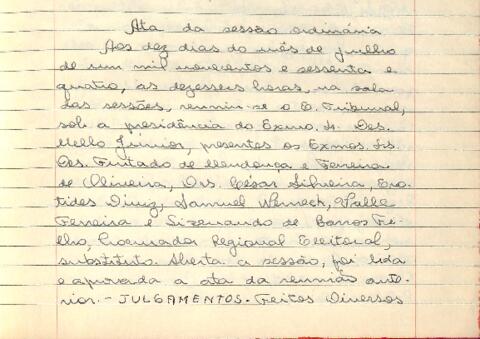 Ata da sessão ordinária
Aos dez dias do mês de julho
de um mil novecentos e sessenta e
quatro, as dezesseis horas, na sala
das sessões, reuniu-se o E. Tribunal,
sob a presidência do Exmo. Sr. Des.
Mello Júnior, presentes os Exmos. Srs.
Des. Furtado de Mendonça e Ferreira
de Oliveira, Drs. César Silveira, Euro-
tides Diniz, Samuel Werneck, Valle
Ferreira e Sizenando de Barros Fi-
lho, Procurador Regional Eleitoral,
substituto. Aberta a sessão, foi lida
e aprovada a ata da reunião ante-
rior. - JULGAMENTOS. Feitos Diversos